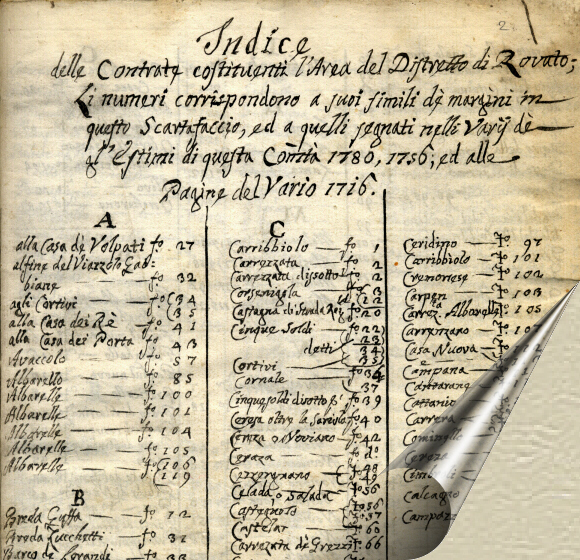 2
Indice
delle Contrate costituenti l'Area del Distretto di Rovato;
Li numeri corrispondono a suoi simili dè margini in
questo Scartafaccio, ed a quelli segnati nelli Varij de
gl'Estimi di questa Com̃tà 1780, 1756; ed alle
Pagine del Vario 1716.
A
alla Casa dè Volpati fo. 27
alfine del Viarzolo Gab:
biane fo 32
agli Cortivi fo (34
(35
alla Casa dei Rè fo 41
alla Casa dei Porta fo 43
Avaccolo fo 57
Albarello fo 85
Albarelle fo 100
Albarelle fo 101
Albarelle fo 104
Albarelle fo 105
Albarelle fo (106
(119
B
Breda Guffa fo 12
Breda Zucchetti fo 31
C
Carribbiolo fo 1
Carrezzata fo 2
Carrezzata disotto fo 2
Consenigola
(12
Castagna di Strada fo 20
Cinque Soldi fo 22)
23)
detti 34)
35)
Cortivi
Cornale fo 36
37
Cinquesoldi disotto fo 39
Ceresa oltre la fo 40
fo 42
Ceraza fo d:
fo 48
49
Celada, o Salada fo 56
Castignolo fo 56
fo 57
Castelar fo 60
Carrezata de Grezzi fo 66
Ceridino fo. 97
Carribbiolo fo 101
Cremonese fo 102
Carpen fo 103
Carrez. Albarelle fo 105
Carremano fo 107
Casa Nuova
Campana
Cattarana
Cattanio
Carrera
Cominello
Calcagno